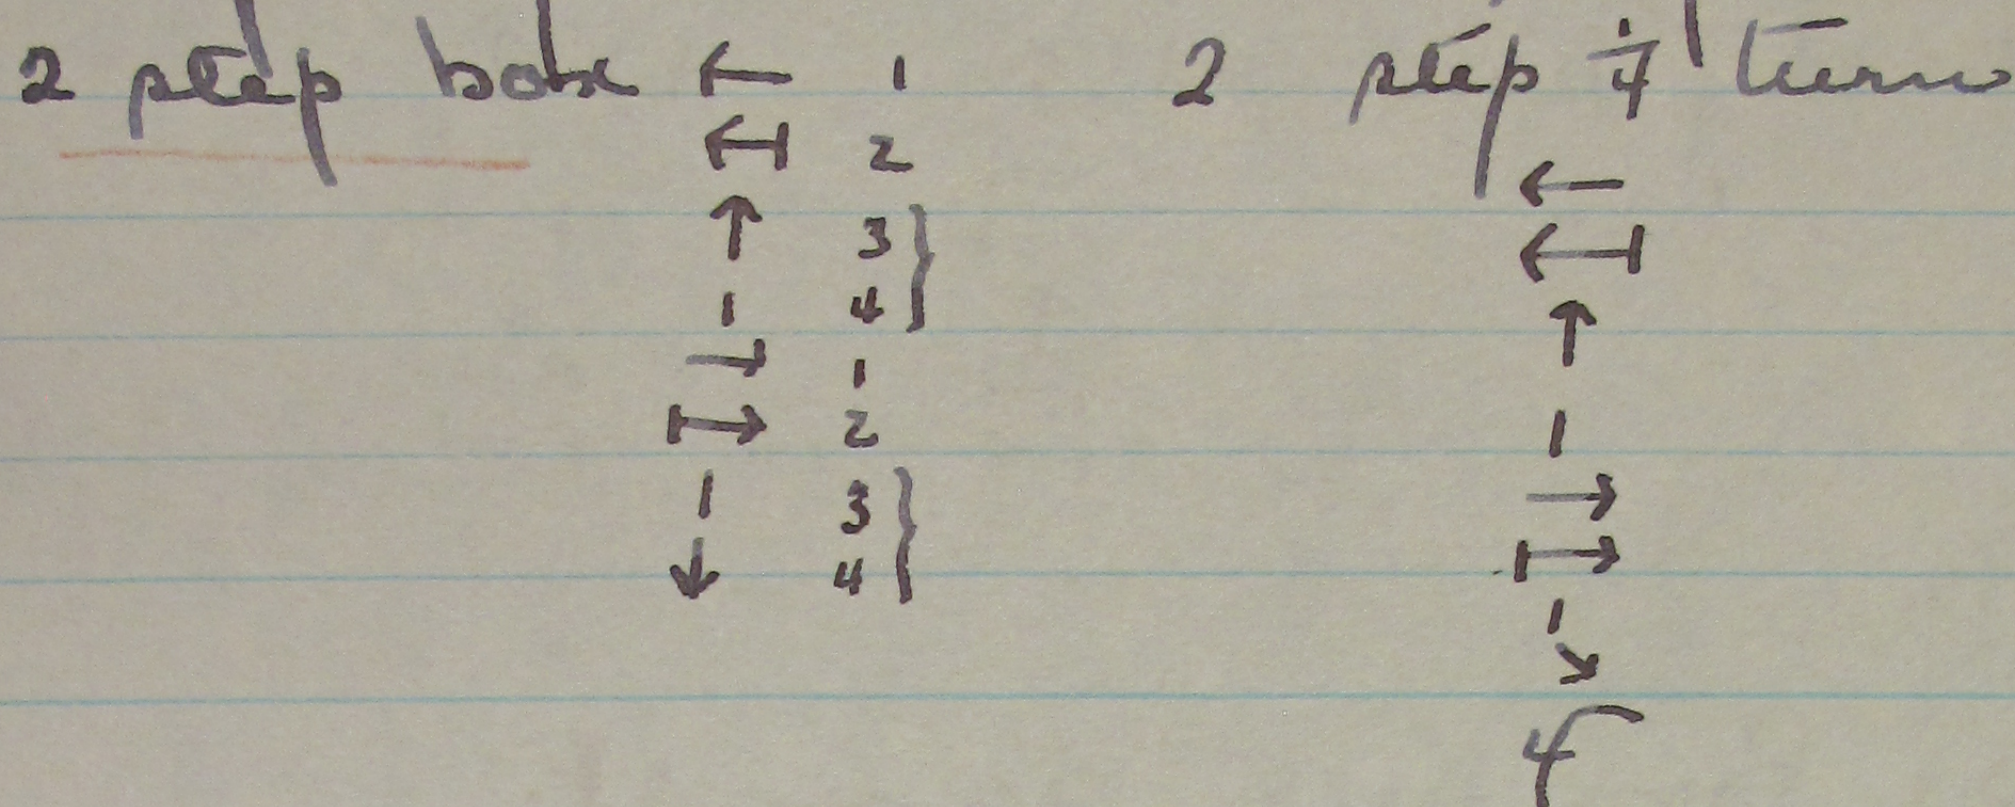 2 step box ← 1
↤ 2
↑ 3 }
ı 4
→ 1
↦ 2
ı 3 }
↓ 4
2 step 1/4 turn
←
↤
↑
ı
→
↦
ı
↘